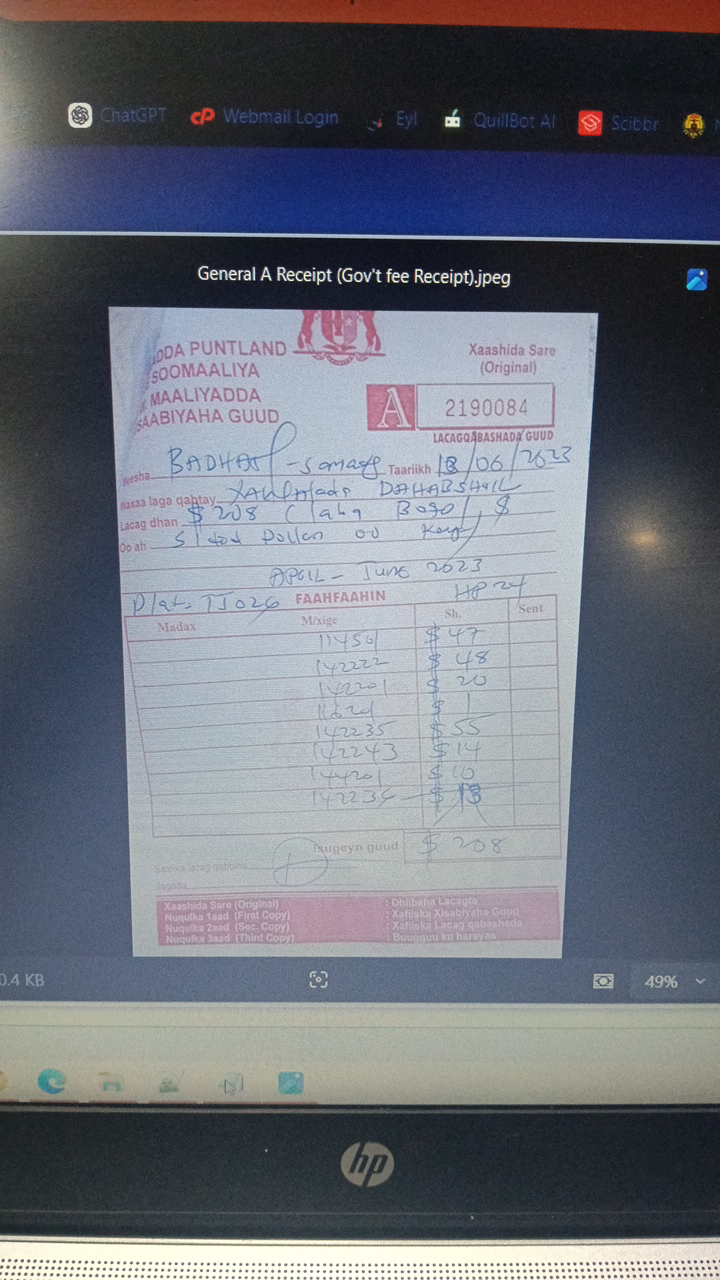 ChatGPT Webmail Login Eyl QuillBot AI Scibbr
General A Receipt (Gov't fee Receipt).jpeg
DDA PUNTLAND
SOOMAALIYA
MAALIYADDA
SAABIYAHA GUUD
Xaashida Sare
(Original)
A 2190084
LACAGQABASHADA GUUD
eesha BADHAN - Taariikh 13/06/2023
waxaa laga qabtay DAHABSHIIL
Lacag dhan $ 208 (Laba Bogol, $
Oo ah
APRIL - June 2023
Plat. TJ026 FAAHFAAHIN HP 24
Madax M/xige Sh. Sent
$ 47
142222 $ 48
142201 $ 20
$ 1
142235 $ 55
142243 $ 14
144201 $ 10
142236 $ 13
Isugeyn guud $ 208
Saxiixa lacag qabtaha
Jagada
Xaashida Sare (Original) : Dhiibaha Lacagta
Nuqulka 1aad (First Copy) : Xafiiska Xisabiyaha Guud
Nuqulka 2aad (Sec. Copy) : Xafiiska Lacag qabashada
Nuqulka 3aad (Third Copy) : Buugguu ku harayaa
0.4 KB 49%
hp